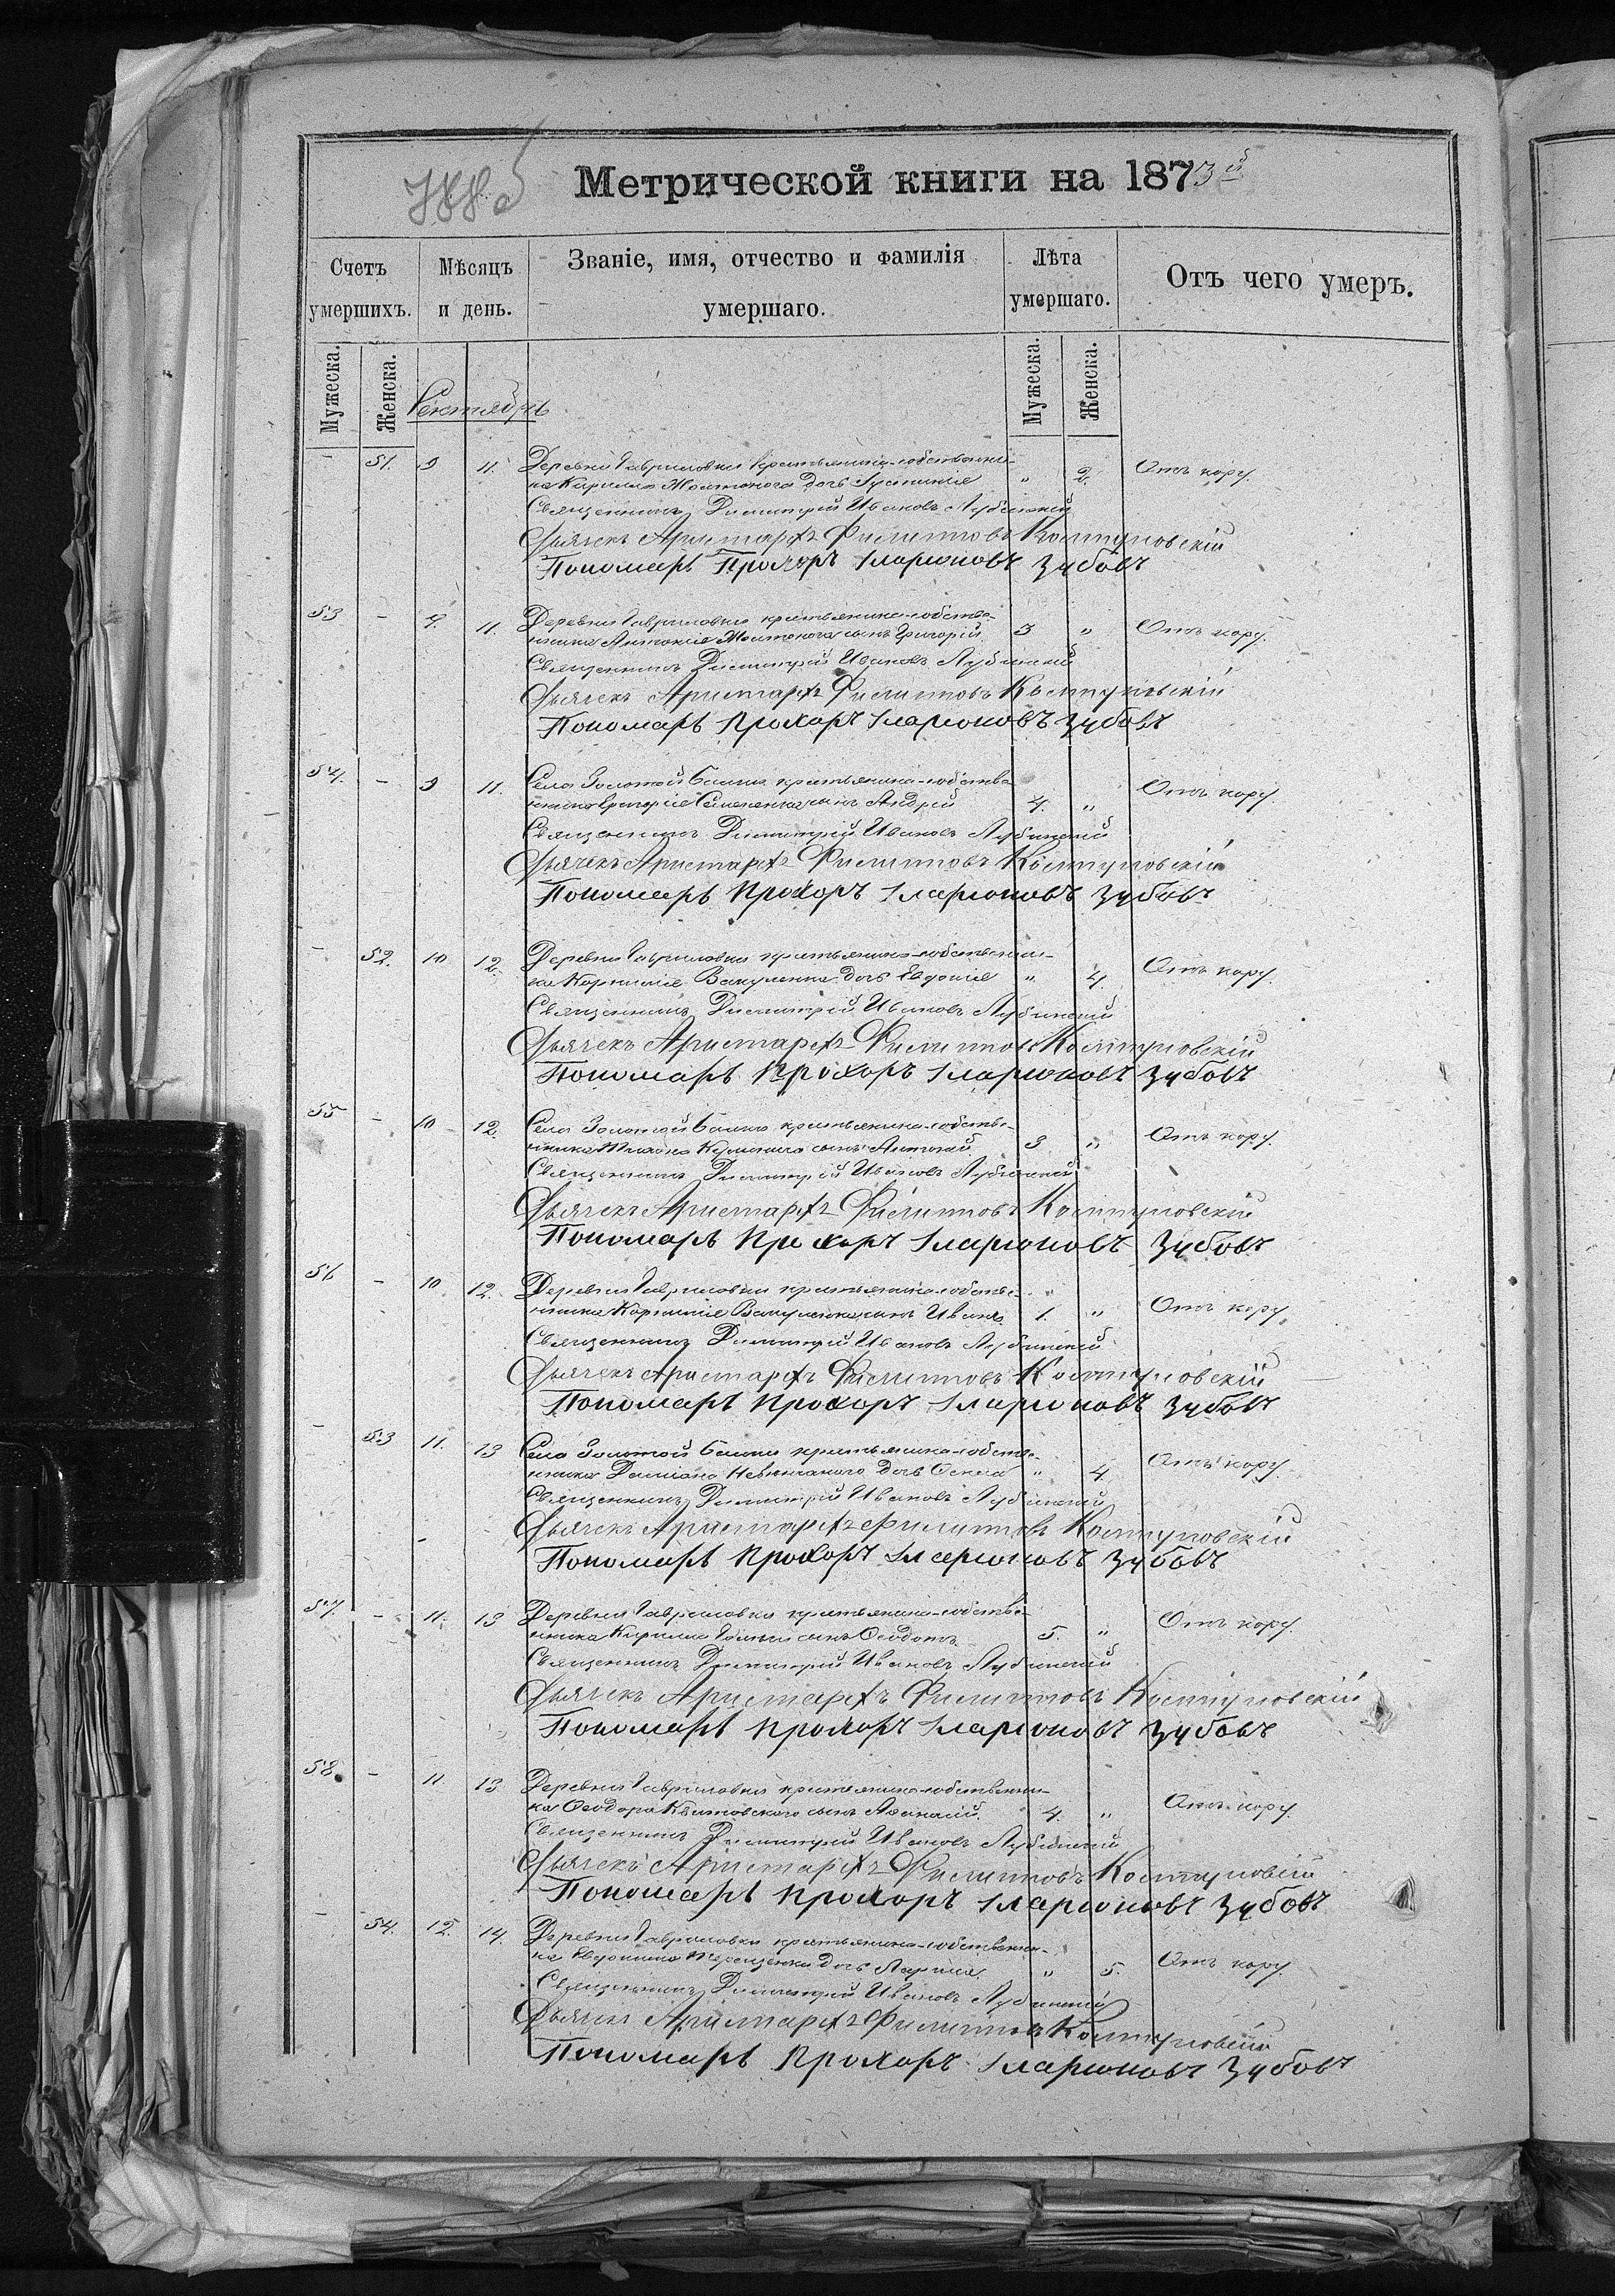 Метрической книги на 1873й
Счетъ умершихъ.
Мѣсяцъ и день.
Званіе, имя, отчество и фамилія умершаго.
Лѣта умершаго.
Отъ чего умеръ.
Мужеска. Женска. Мужеска. Женска.
Сентябрь
- 51. 9 11. Деревни Гавриловки крестьянина-собственни-
ка Кирилла дочь " 2. Отъ кору.
Священникъ Димитрій Ивановъ Лубинскій
Дьячекъ Аристархъ Филипповъ Костуновскій
Пономарь Прохоръ Іларіоновъ Зубовъ
53 - 9. 11. Деревни Гавриловки крестьянина-собстве-
нника Антонія сынъ Григорій 3 " Отъ кору.
Священникъ Димитрій Ивановъ Лубинскій
Дьячекъ Аристархъ Филипповъ Костуновскій
Пономарь Прохоръ Іларіоновъ Зубовъ
54. - 9 11. Села Золотой Балки крестьянина-собстве-
нника Григорія Семененка сынъ Андрей 4. " Отъ кору.
Священникъ Димитрій Ивановъ Лубинскій
Дьячекъ Аристархъ Филипповъ Костуновскій
Пономарь Прохоръ Іларіоновъ Зубовъ
- 52. 10 12. Деревни Гавриловки крестьянина-собственни-
ка Корнилія Вакуленка дочь Евдокія " 4. Отъ кору.
Священникъ Димитрій Ивановъ Лубинскій
Дьячекъ Аристархъ Филипповъ Костуновскій
Пономарь Прохоръ Іларіоновъ Зубовъ
55 - 10 12. Села Золотой Балки крестьянина-собстве-
нника сынъ Антоній 3 " Отъ кору.
Священникъ Димитрій Ивановъ Лубинскій
Дьячекъ Аристархъ Филипповъ Костуновскій
Пономарь Прохоръ Іларіоновъ Зубовъ
56 - 10 12. Деревни Гавриловки крестьянина-собстве-
нника Корнилія Вакуленка сынъ Иванъ 1. " Отъ кору.
Священникъ Димитрій Ивановъ Лубинскій
Дьячекъ Аристархъ Филипповъ Костуновскій
Пономарь Прохоръ Іларіоновъ Зубовъ
- 53 11. 13 Села Золотой Балки крестьянина-собстве-
нника Даміана дочь " 4. Отъ кору.
Священникъ Димитрій Ивановъ Лубинскій
Дьячекъ Аристархъ Филипповъ Костуновскій
Пономарь Прохоръ Іларіоновъ Зубовъ
57. - 11. 13 Деревни Гавриловки крестьянина-собстве-
нника Кирилла сынъ Ѳеодотъ 5. " Отъ кору.
Священникъ Димитрій Ивановъ Лубинскій
Дьячекъ Аристархъ Филипповъ Костуновскій
Пономарь Прохоръ Іларіоновъ Зубовъ
58. - 11 13. Деревни Гавриловки крестьянина-собственни-
ка Ѳеодора сынъ Аѳанасій 4. " Отъ кору.
Священникъ Димитрій Ивановъ Лубинскій
Дьячекъ Аристархъ Филипповъ Костуновскій
Пономарь Прохоръ Іларіоновъ Зубовъ
- 54. 12. 14. Деревни Гавриловки крестьянина-собственни-
ка Терещенка дочь " 5. Отъ кору.
Священникъ Димитрій Ивановъ Лубинскій
Дьячекъ Аристархъ Филипповъ Костуновскій
Пономарь Прохоръ Іларіоновъ Зубовъ